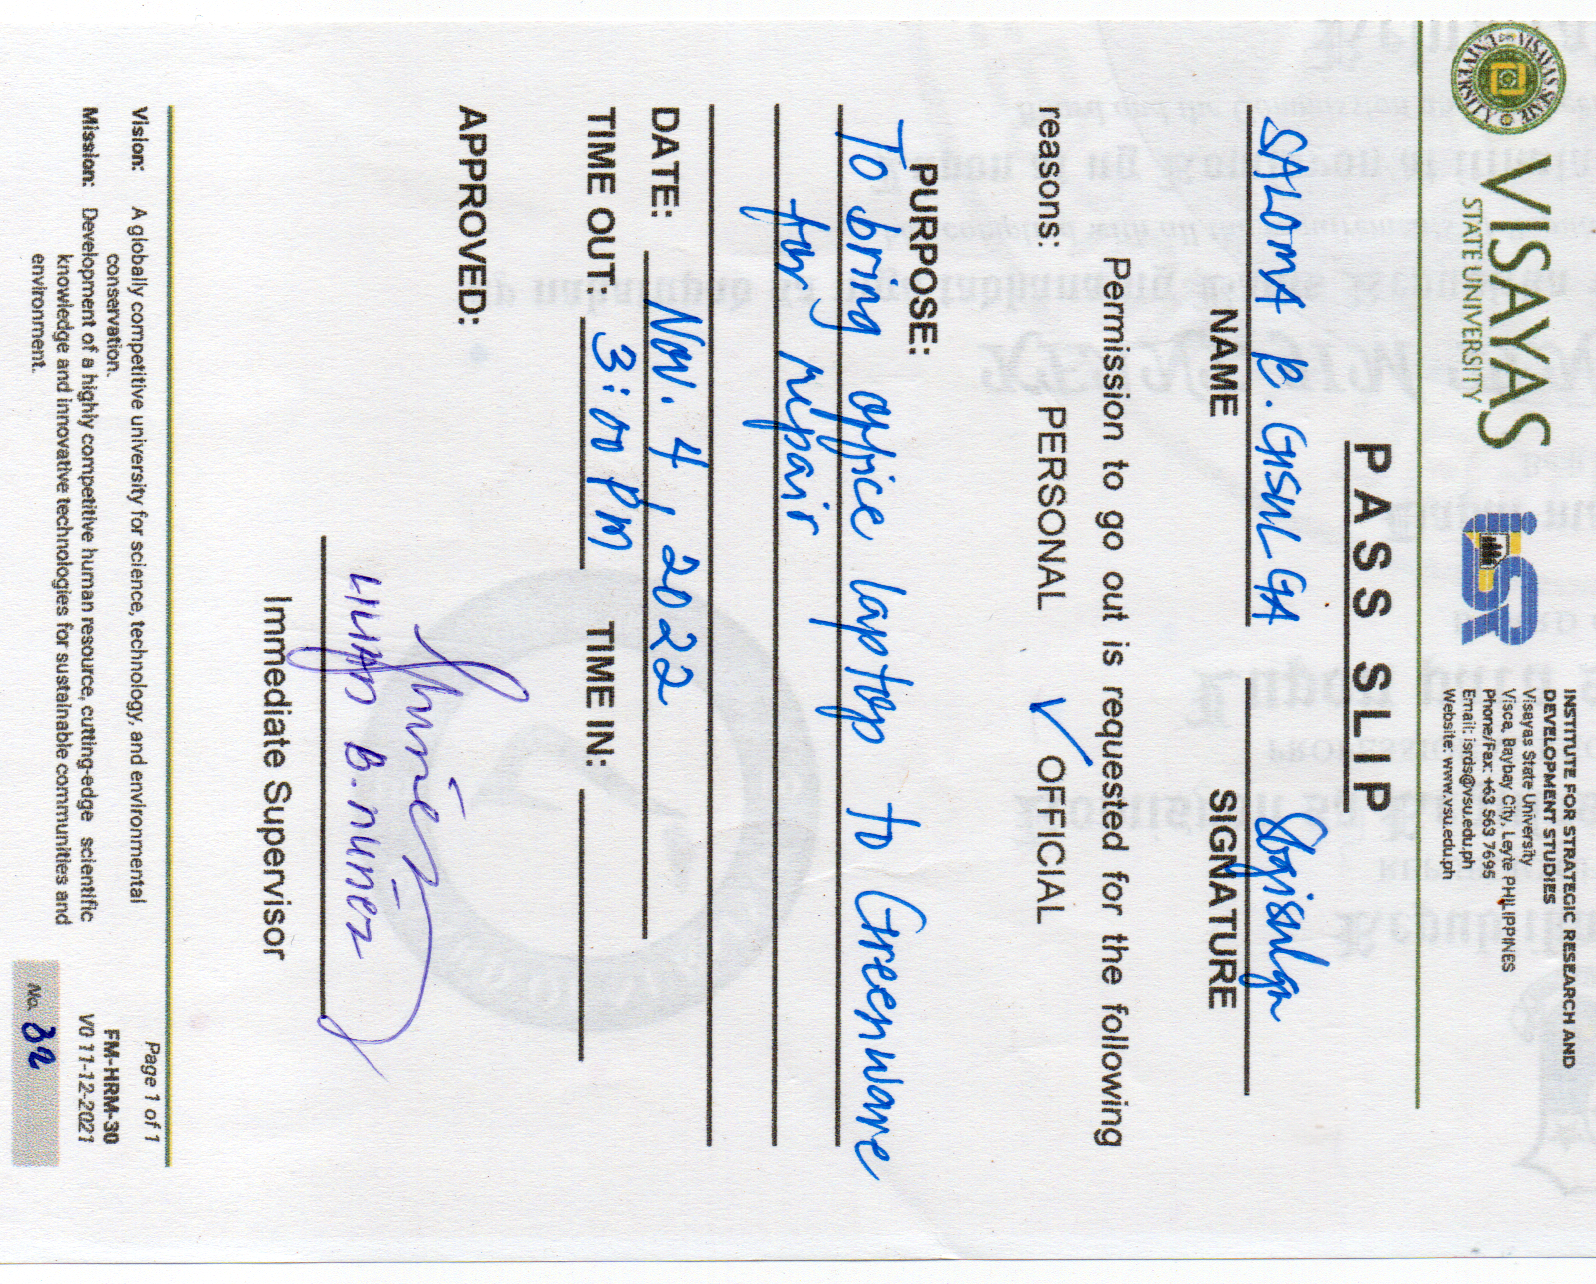 VISAYAS
STATE UNIVERSITY
iSR
INSTITUTE FOR STRATEGIC RESEARCH AND
DEVELOPMENT STUDIES
Visayas State University
Visca, Baybay City, Leyte PHILIPPINES
Phone/Fax: +63 563 7695
Email: isrds@vsu.edu.ph
Website: www.vsu.edu.ph
PASS SLIP
SALOMA B. GISULGA Sbgisulga
NAME SIGNATURE
Permission to go out is requested for the following
reasons: PERSONAL ✓ OFFICIAL
PURPOSE:
To bring office laptop to Greenware
for repair
DATE: Nov. 4, 2022
TIME OUT: 3:00 PM TIME IN:
APPROVED:
LILIAN B. NUÑEZ
Immediate Supervisor
Vision: A globally competitive university for science, technology, and environmental
conservation.
Mission: Development of a highly competitive human resource, cutting-edge scientific
knowledge and innovative technologies for sustainable communities and
environment.
Page 1 of 1
FM-HRM-30
V0 11-12-2021
No. 32